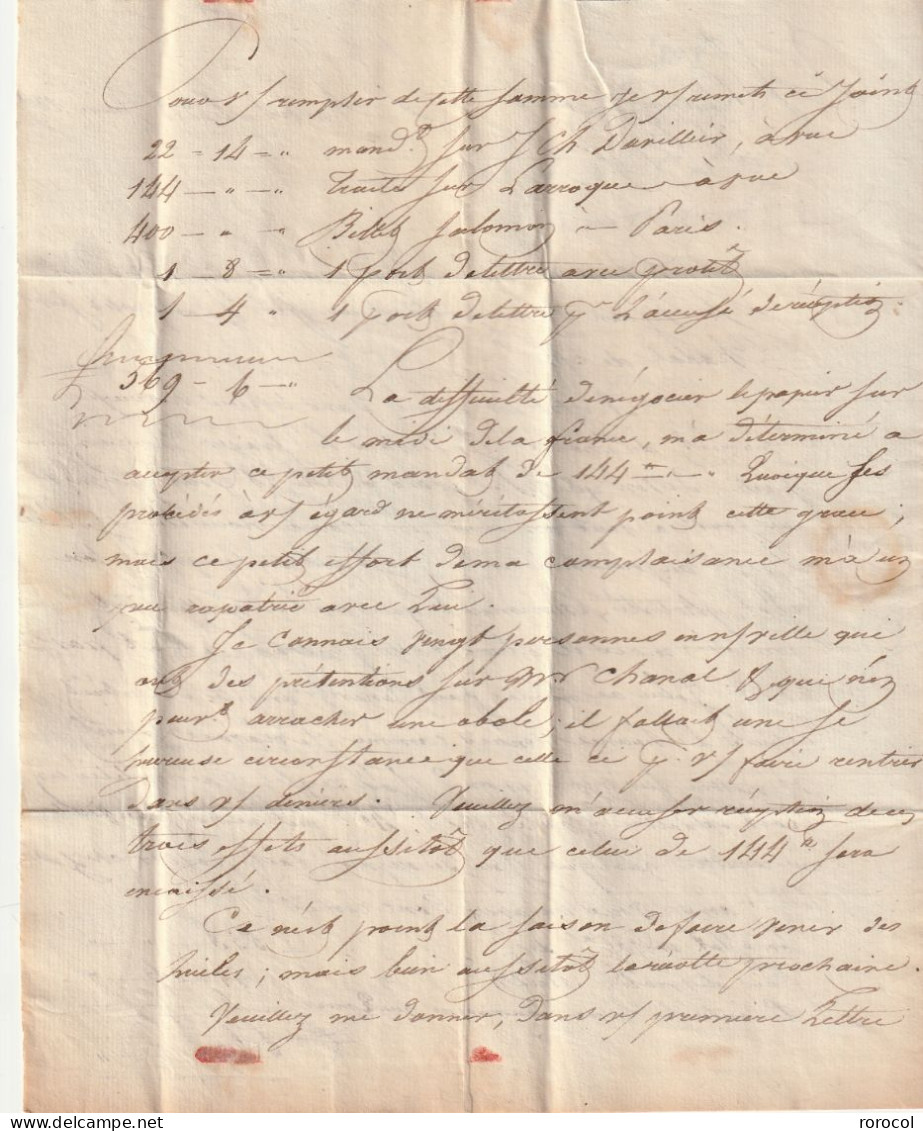 Pour vs remplir de cette somme je vs remets cë Joint
22 - 14 - " mandt sur J Ch Davillier, à vue
144 - " - " traite sur Larroque à vue
400 - " - " Billet Salomon à Paris.
1 - 8 - " 1 port de lettre avec protêt
1 - 4 " 1 port de lettre pr L'accusé de réception
569 - 6 - " La difficulté de négocier le papier sur
le midi de la france, m'a déterminé a
accepter ce petit mandat de 144 " " Quoique ses
procédés à vs égard ne méritassent point cette grace;
mais ce petit effort de ma complaisance m'a un
peu rapatrié avec Lui.
Je connais vingt personnes en vs ville qui
ont des prétentions sur Mr Chanal & que n'en
peuvt arracher une obole; il fallait une se
heureuse circonstance que celle ci pr vs faire rentrer
dans vs deniers. Veuillez m'accuser réception de ces
trois effets aussitôt que celui de 144 sera
encaissé.
Ce n'est point la saison de faire venir des
huiles; mais bien aussitôt la récolte prochaine.
Veuillez me donner, dans vs premiere Lettre
rorocol